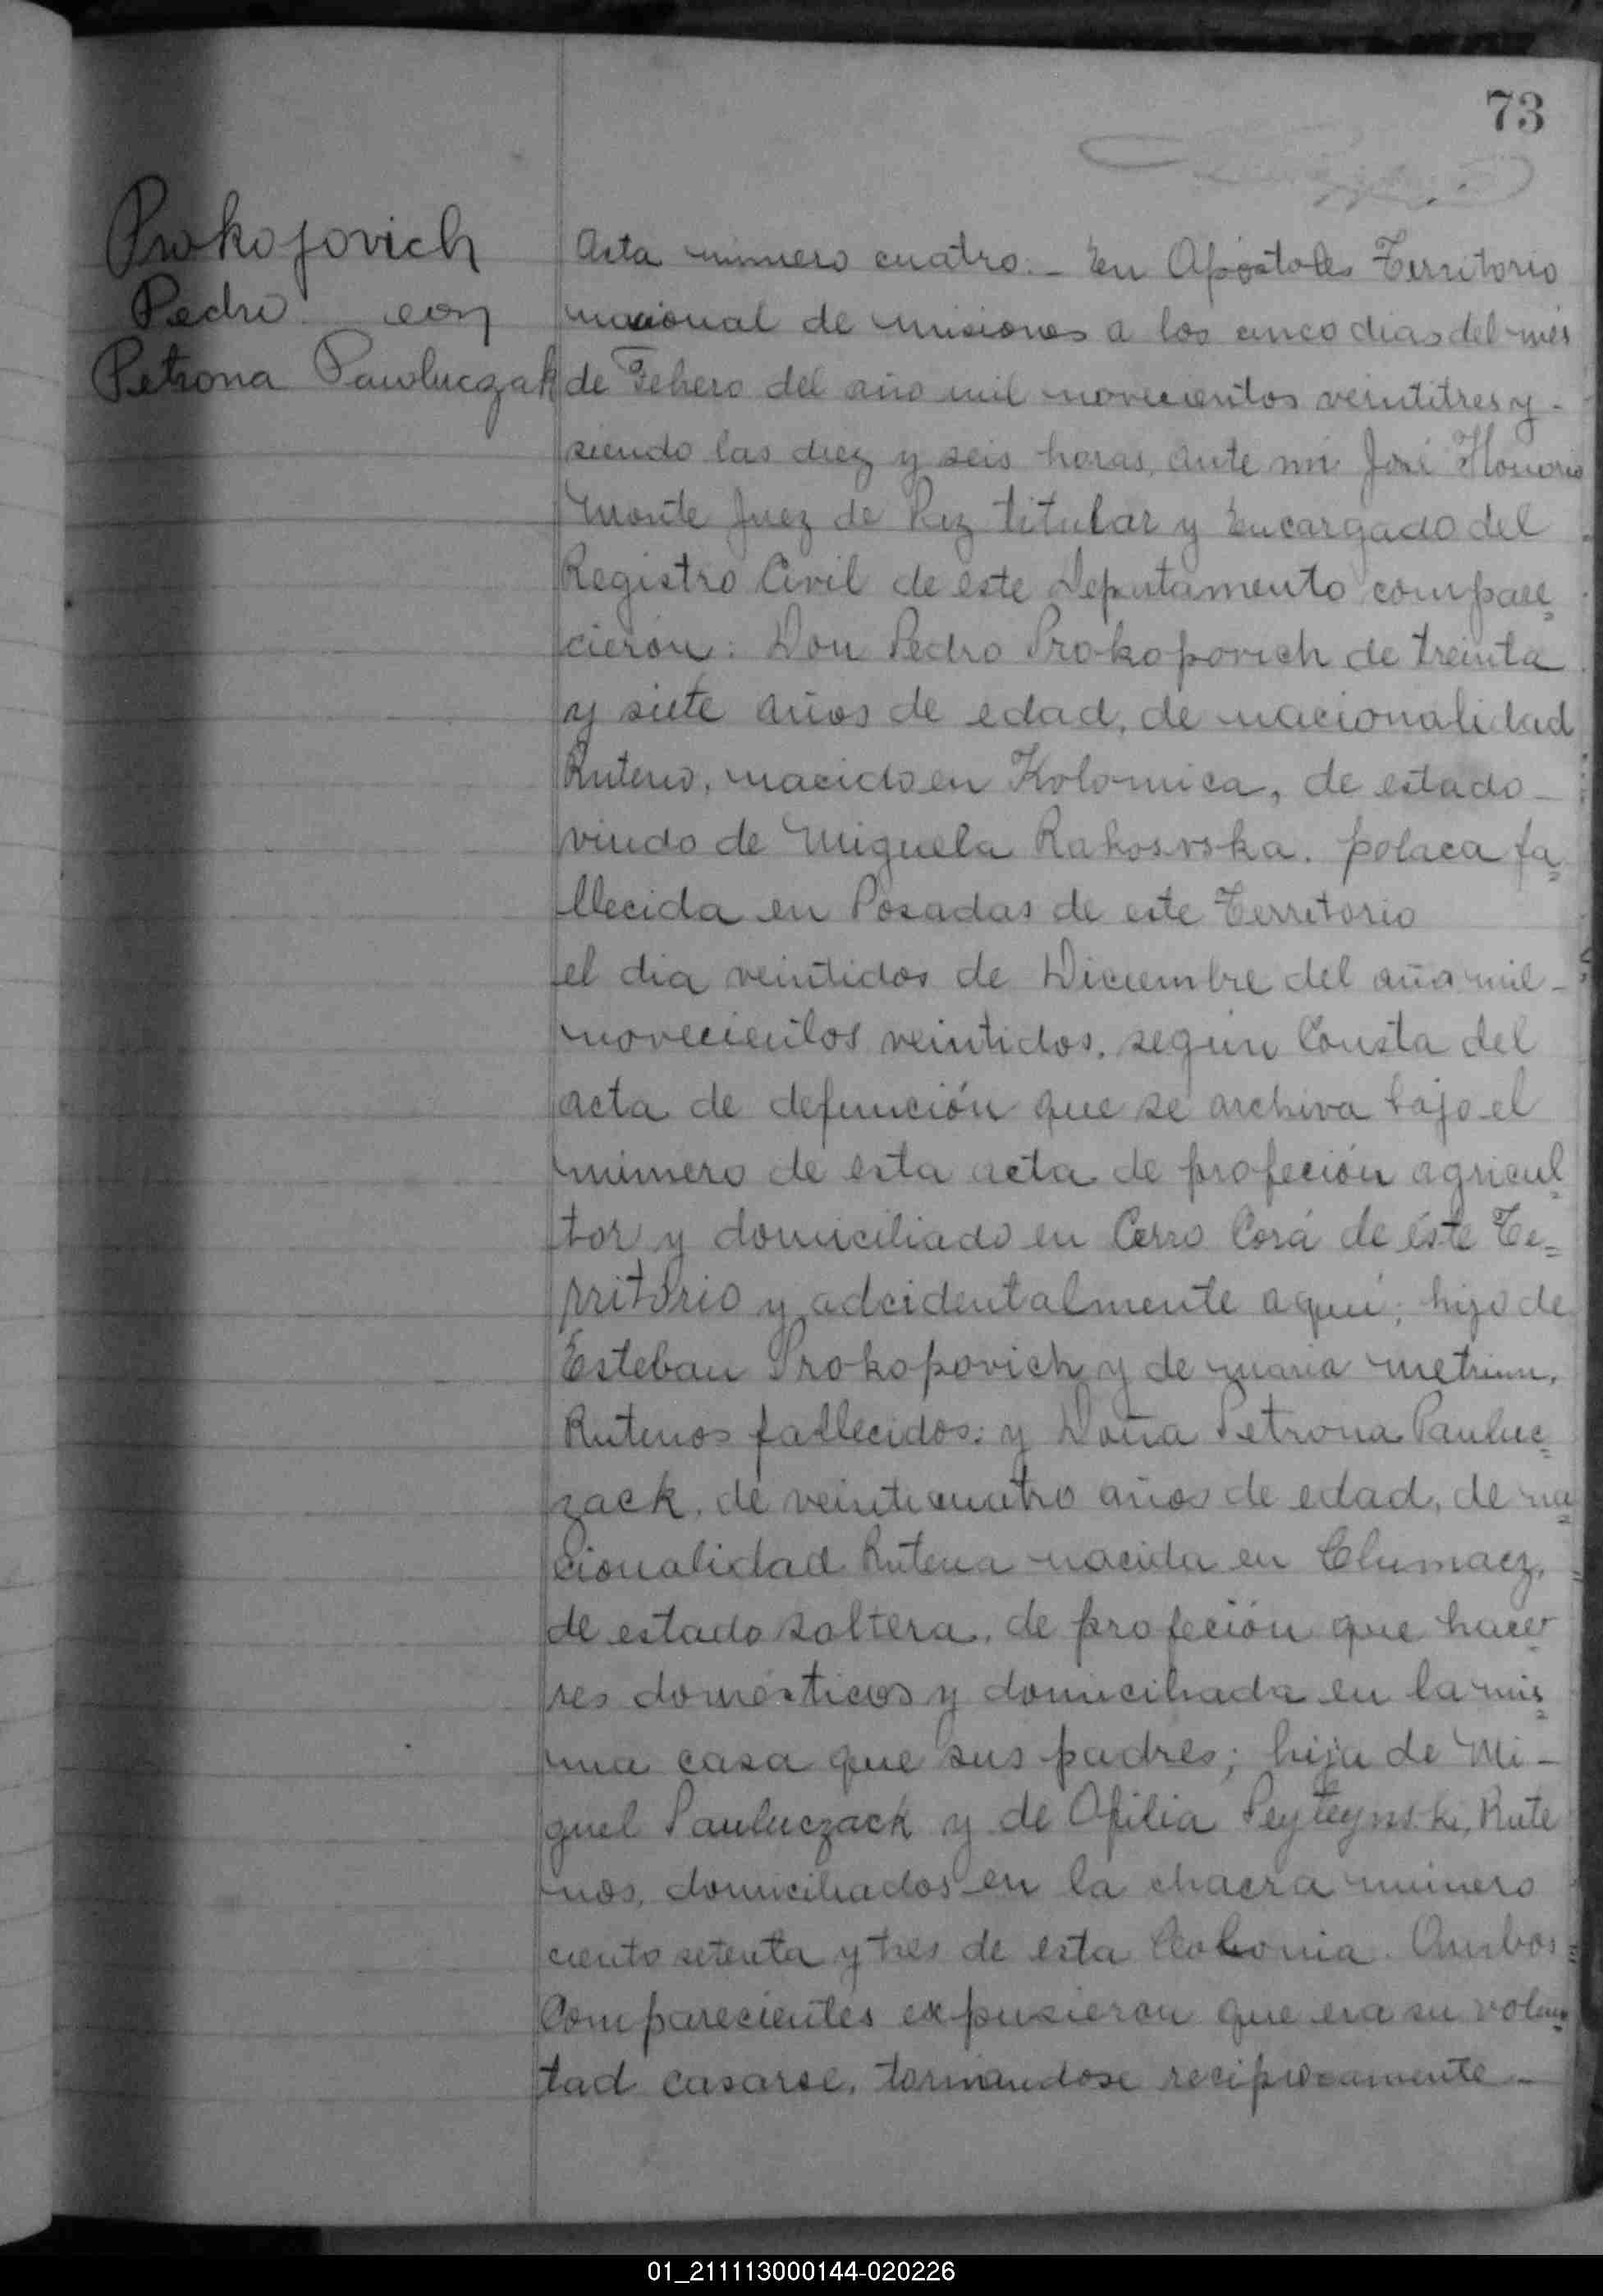 73
Prokojovich
Pedro con
Petrona Pawluczak
Acta número cuatro. - En Apóstoles Territorio
nacional de misiones a los cinco dias del mes
de Febero del año mil novecientos veintitres y -
siendo las diez y seis horas, ante mi José Honorio
Monte Juez de Paz titular y Encargado del
Registro Civil de este Depertamento compare
cieron: Don Pedro Prokopovich de treinta
y siete años de edad, de nacionalidad
Ruteno, nacido en Kolomica, de estado -
viudo de Miguela Rakosvska. polaca fa
llecida en Posadas de este Territorio
el dia veintidos de Diciembre del año mil -
novecientos veintidos, según Consta del
acta de defunción que se archiva bajo el
número de esta acta de profeción agricul
tor y domiciliado en Cerro Corá de éste Te=
rritorio y adcidentalmente aqui; hijo de
Esteban Prokopovich y de maria
Rutenos fallecidos; y Doña Petrona Pauluc=
zack, de veinticuatro años de edad, de na
cionalidad Rutena nacida en Clumacz,
de estado soltera, de profeción que hace
res domésticos y domiciliada en la mis
ma casa que sus padres; hija de Mi -
guel Pauluczack y de Ofilia Rute
nos, domiciliados en la chacra número
ciento setenta y tres de esta Colonia. Ambos
Comparecientes expusieron que era su volun
tad casarse, tormandose reciprocamente -
01_211113000144-020226